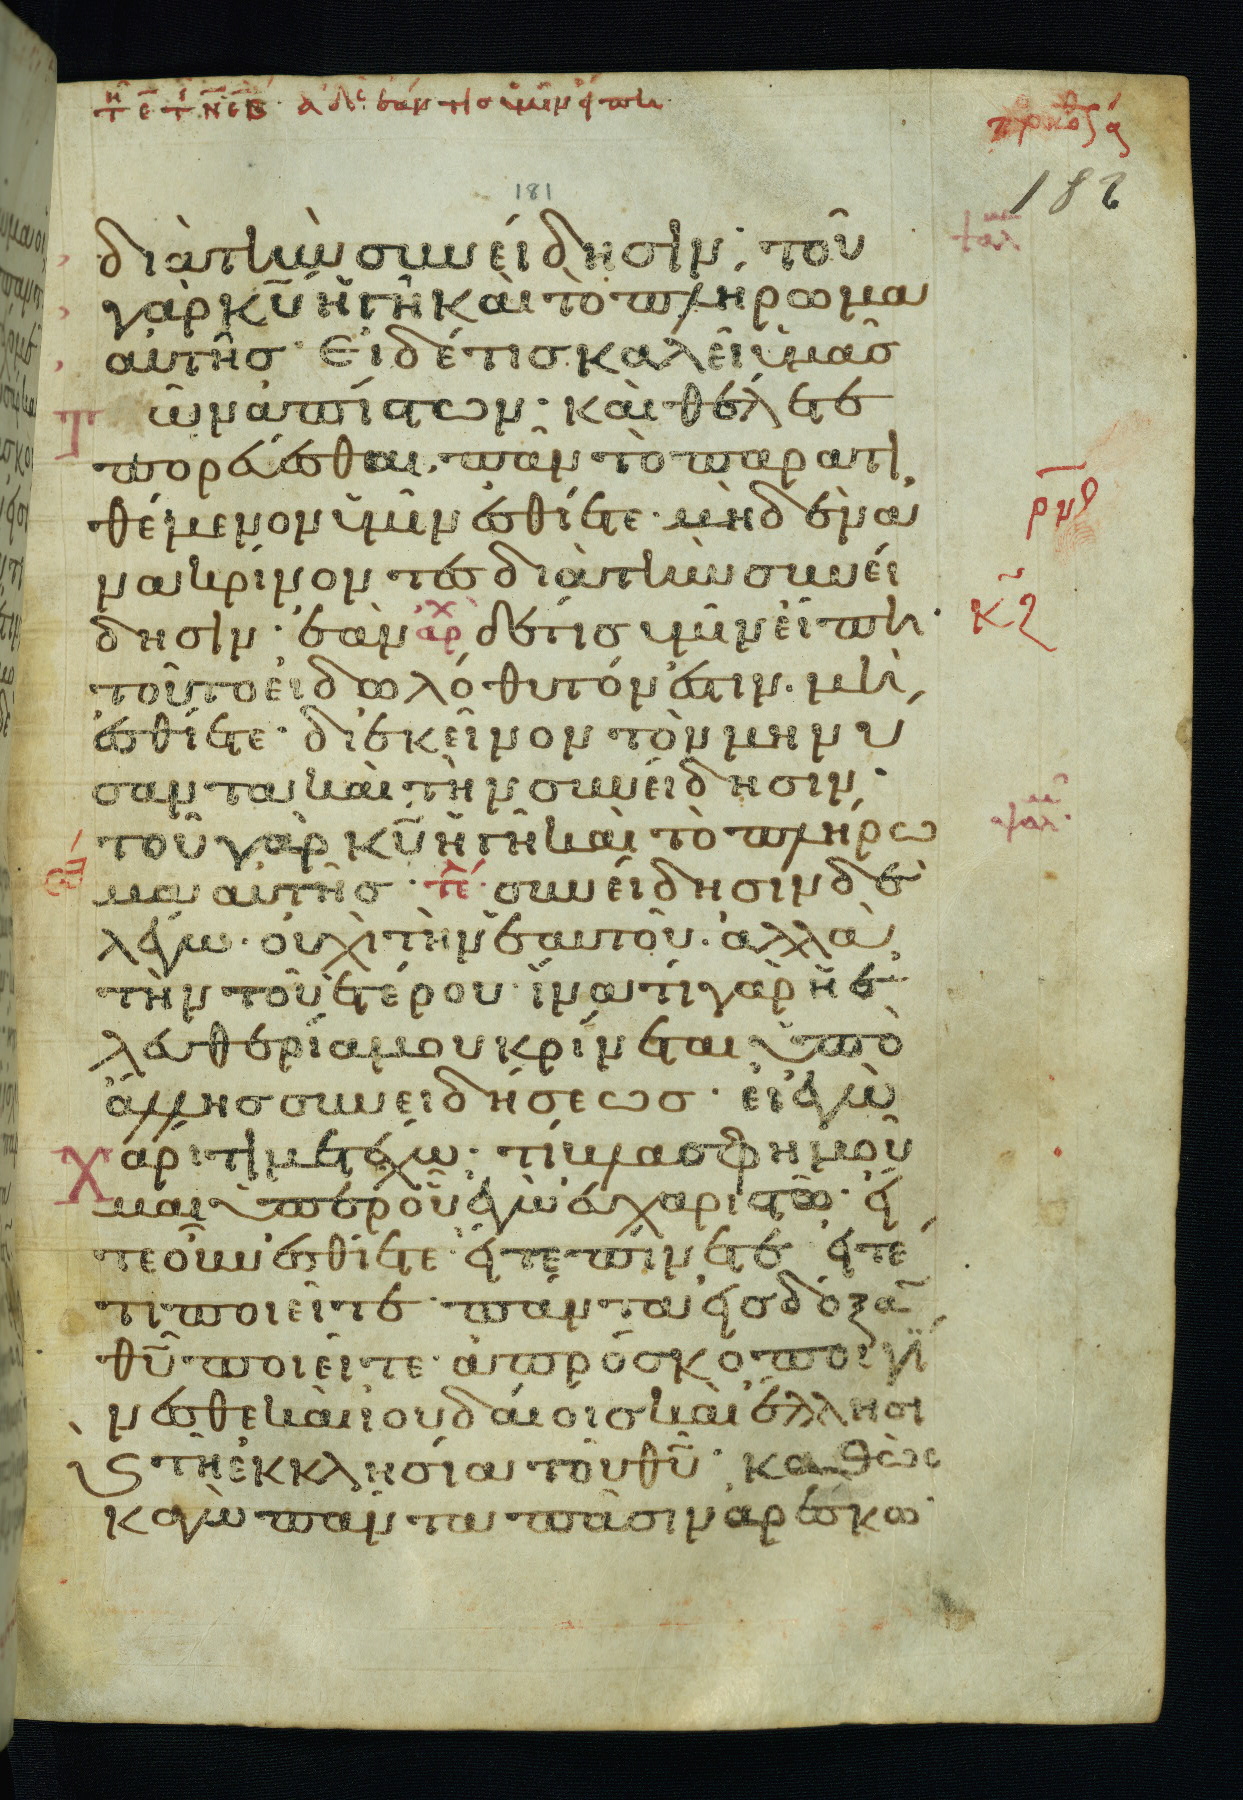 181
182
διὰ τὴν συνείδησιν· τοῦ
γὰρ κ̅υ̅ ἡ γῆ καὶ τὸ πλήρωμα
αὐτῆς· Εἰ δέ τις καλεῖ ὑμᾶς
Τῶν ἀπίστων· καὶ θέλετε
πορεύεσθαι, πᾶν τὸ παρατι
θέμενον ὑμῖν ἐσθίετε· μηδὲν ἀ
νακρίνοντες διὰ τὴν συνεί
δησιν· ἐὰν ἀρ̅χ̅ δέ τις ὑμῖν εἴπη·
τοῦτο εἰδωλόθυτόν ἐστιν· μὴ
ἐσθίετε· δι' ἐκεῖνον τὸν μηνύ
σαντα καὶ τὴν συνείδησιν·
τοῦ γὰρ κ̅υ̅ ἡ γῆ καὶ τὸ πλήρω
μα αὐτῆς· τε̅λ̅ συνείδησιν δὲ
λέγω· οὐχὶ τὴν ἑαυτοῦ· ἀλλὰ
τὴν τοῦ ἑτέρου· ἵνα τί γὰρ ἡ ἐ
λευθερία μου κρίνεται ὑπὸ
ἄλλης συνειδήσεως· εἰ ἐγὼ
Χάριτι μετέχω· τί βλασφημοῦ
μαι ὑπὲρ οὗ ἐγὼ εὐχαριστῶ· εἴ
τε οὖν ἐσθίετε· εἴτε πίνετε· εἴτέ
τι ποιεῖτε· πάντα εἰς δόξαν
θ̅υ̅ ποιεῖτε· ἀπρόσκοποι γί
νεσθε καὶ ἰουδαίοις καὶ ἕλλησι
ϗ τῆ ἐκκλησία τοῦ θ̅υ̅· καθὼς
κἀγὼ πάντα πᾶσιν ἀρέσκω·
ρνδ